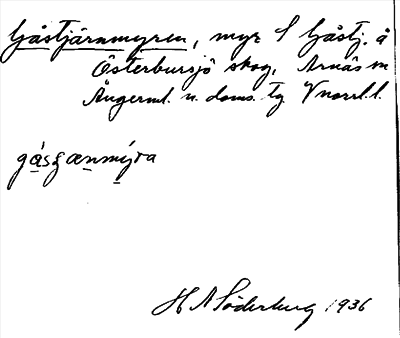 Gåstjärnmyren, myr S Gåstj. å
Österbursjö skog, Arnäs sn
Ångerml. n. doms. tg Vnorrl. l.
H A Söderberg 1936